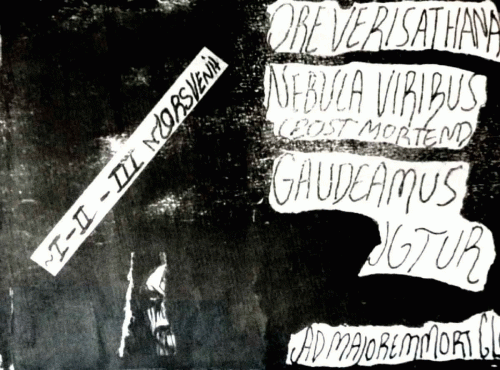 ~I-II-III MORSVENIA
ORE VERISATHANA
NEBULA VIRIBUS
(POST MORTEND
GAUDEAMUS
JGTUR
AD MAJOREMMORT GL